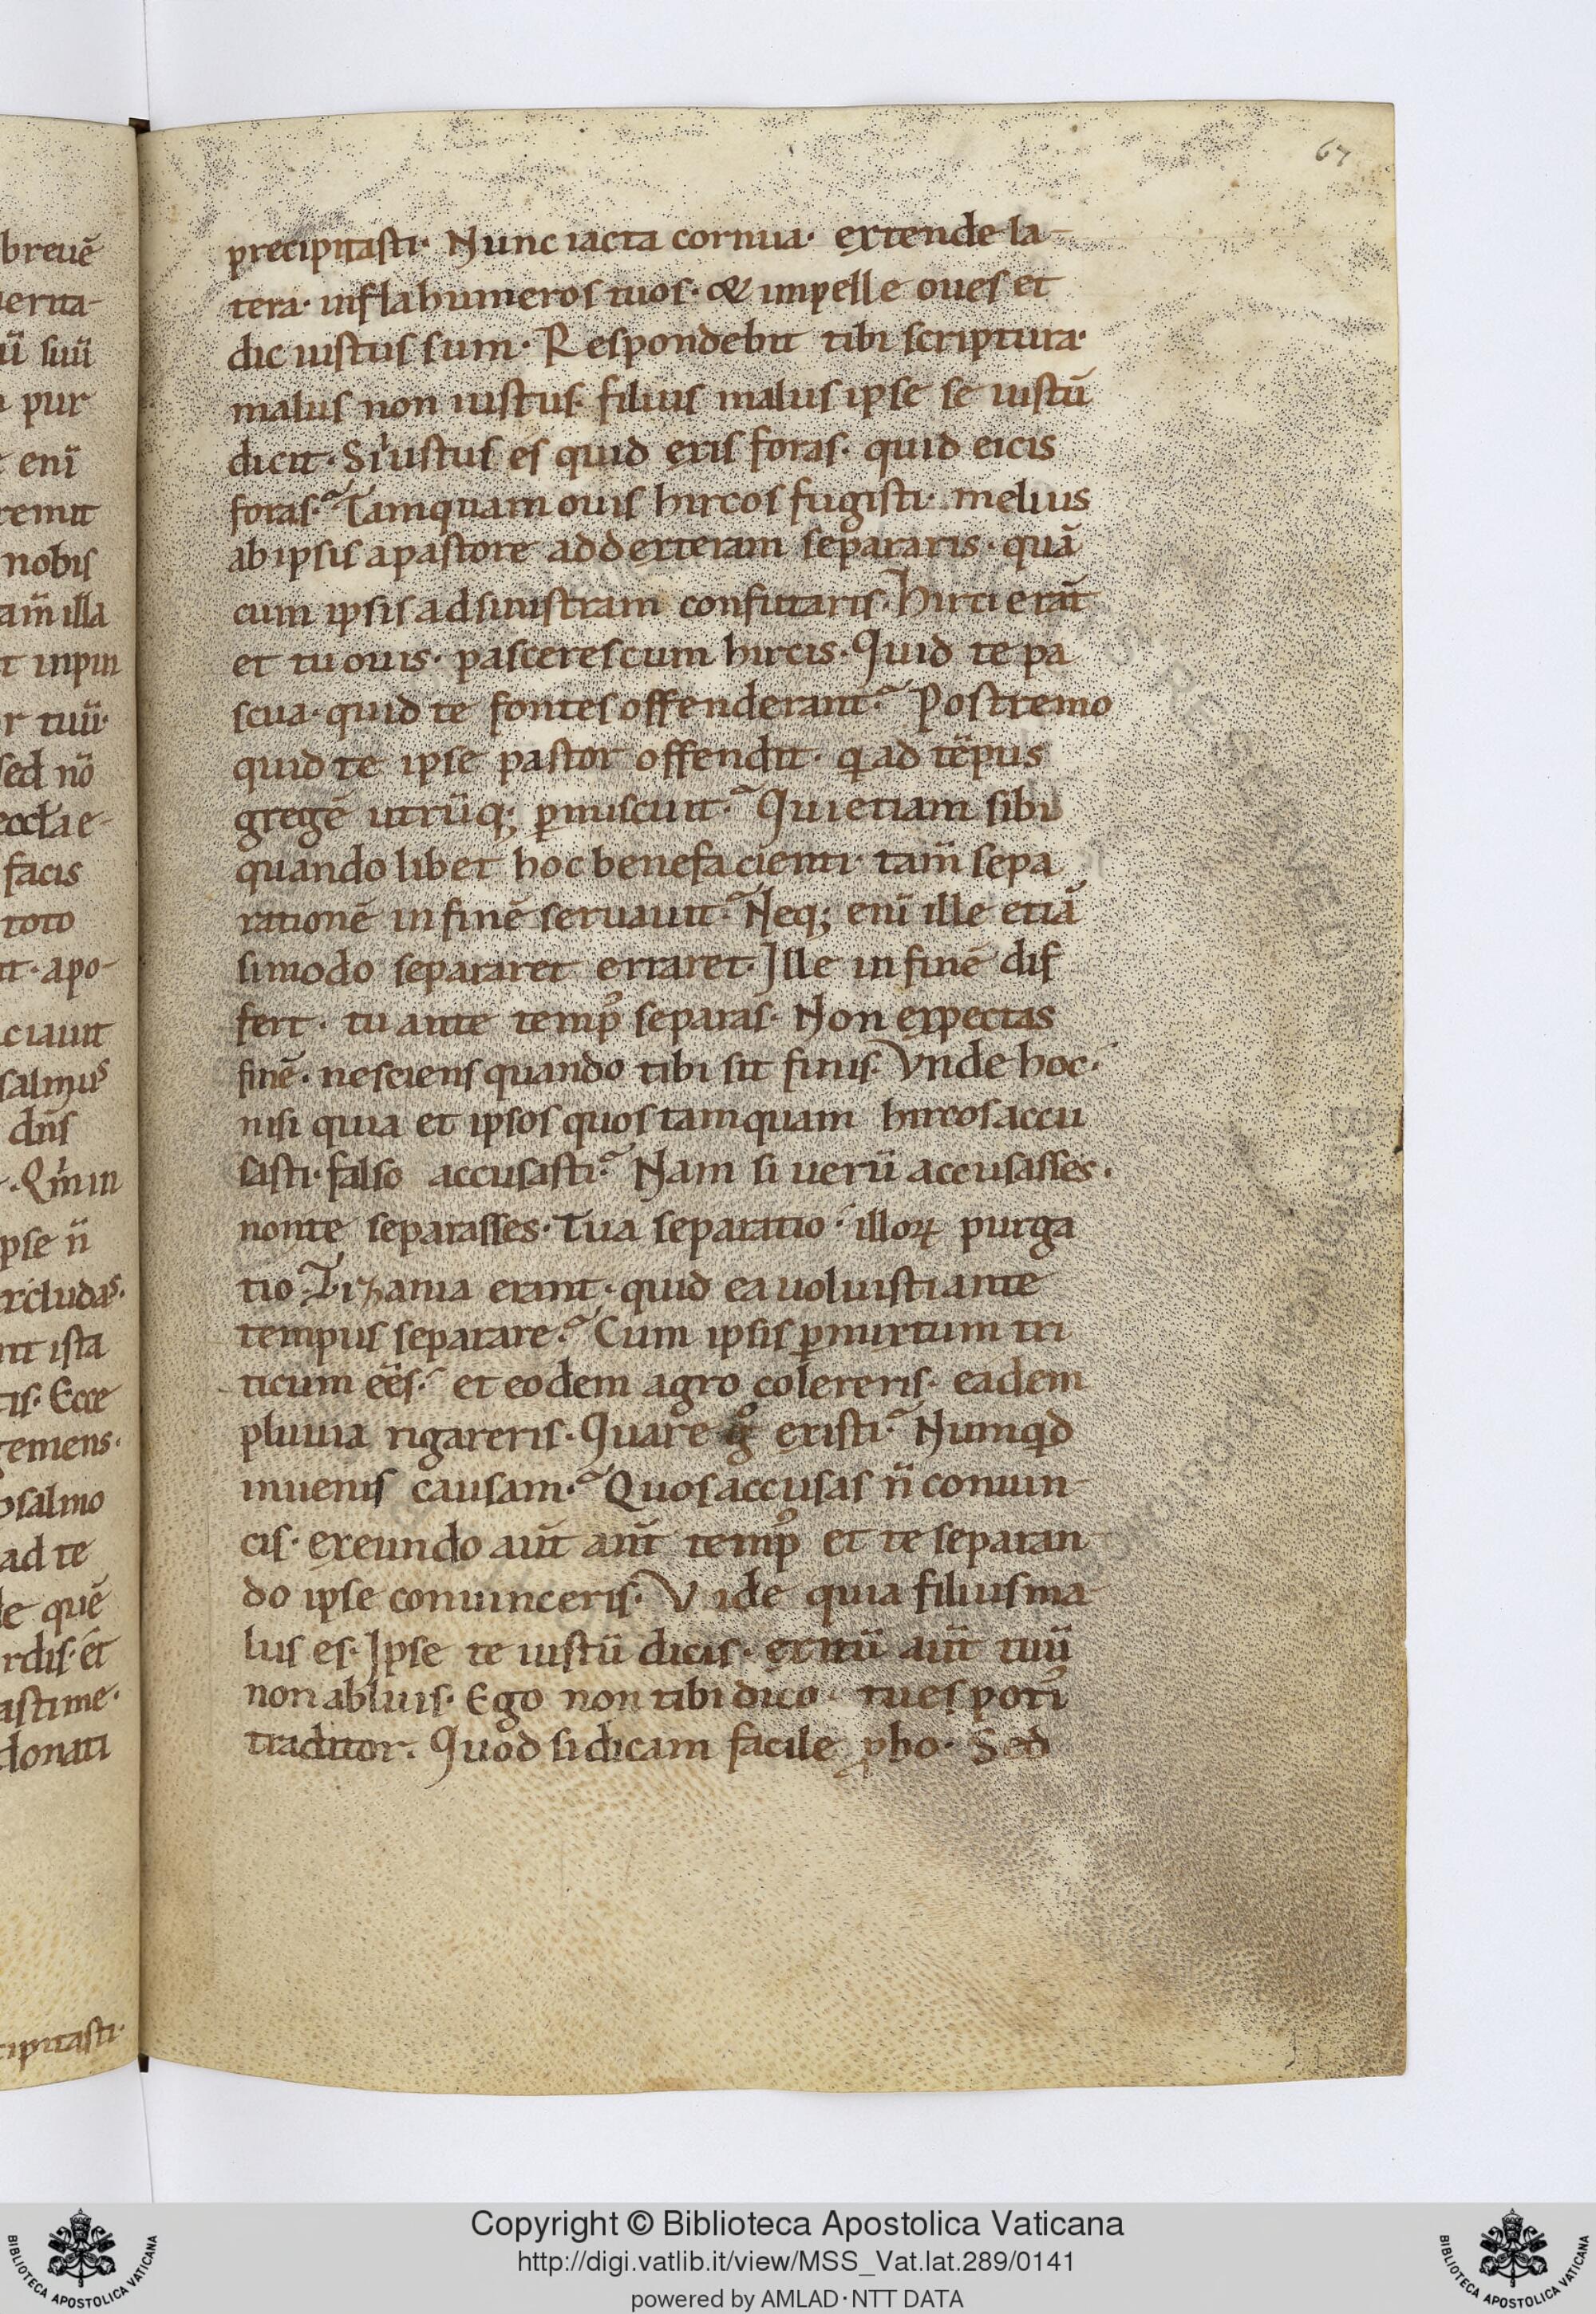 67
breuē
uerita-
ū suū
pur
enī
remit
nobis
am̄ illa
t inpin
r tuū·
sed nō
eccl̄ae-
facis
toto
it· apo-
ciauit
salmus
dn̄s
·Qm̄ in
pse n̄
excludas·
nt ista
tis· Ecce
temens·
psalmo
ad te
le quē
rdis· et
asti me·
donati
cipitasti·
precipitasti· Nunc iacta cornua· extende la-
tera· infla humeros tuos· & impelle oues et
dic iustus sum· Respondebit tibi scriptura·
malus non iustus· filius malus ipse se iustū
dicit· Si iustus es quid exis foras· quid eicis
foras? Tamquam ouis hircos fugisti· melius
ab ipsis a pastore ad dexteram separaris· quā
cum ipsis ad sinistram confutaris· Hirci erāt
et tu ouis· pasceres cum hircis· Quid te pa
scua· quid te fontes offenderant? Postremo
quid te ipse pastor offendit· q ad tēpus
gregē utrūq; ꝑmiscuit? Qui etiam sibi
quando libet hoc benefacienti· tam̄ sepa
rationē in finē seruauit? Neq; enī ille etiā
si modo separaret erraret· Ille in finē dif
fert· tu ante temp᾿ separas· Non expectas
finē· nesciens quando tibi sit finis· Vnde hoc·
nisi quia et ipsos quos tamquam hircos accu
sasti· falso accusasti? Nam si uerū accusasses·
non te separasses· Tua separatio· illoꝝ purga
tio· Zizania erant· quid ea uoluisti ante
tempus separare? Cum ipsis ꝑmixtum tri
ticum eēs· et eodem agro colereris· eadem
pluuia rigareris· Quare gͦ existi? Numqd
inuenis causam? Quos accusas n̄ conuin-
cis· exeundo aut̄ ant̄ temp᾿ et te separan-
do ipse conuinceris· Vide quia filius ma-
lus es· Ipse te iustū dicis· exitū aut̄ tuū
non abluis· Ego non tibi dico· tu es poti᾿
traditor· Quod si dicam facile ꝓbo· Sed
Copyright © Biblioteca Apostolica Vaticana
http://digi.vatlib.it/view/MSS_Vat.lat.289/0141
powered by AMLAD·NTT DATA
BIBLIOTECA APOSTOLICA VATICANA
BIBLIOTECA APOSTOLICA VATICANA